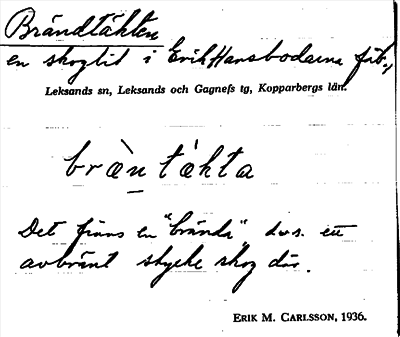 Brändtäkten
en skogbit i ErikHansbodarna fäb.,
Leksands sn, Leksands och Gagnefs tg, Kopparbergs län.
brä̀n tä́kta
Det finns en "brända" dvs. ett
avbränt stycke skog där.
ERIK M. CARLSSON, 1936.